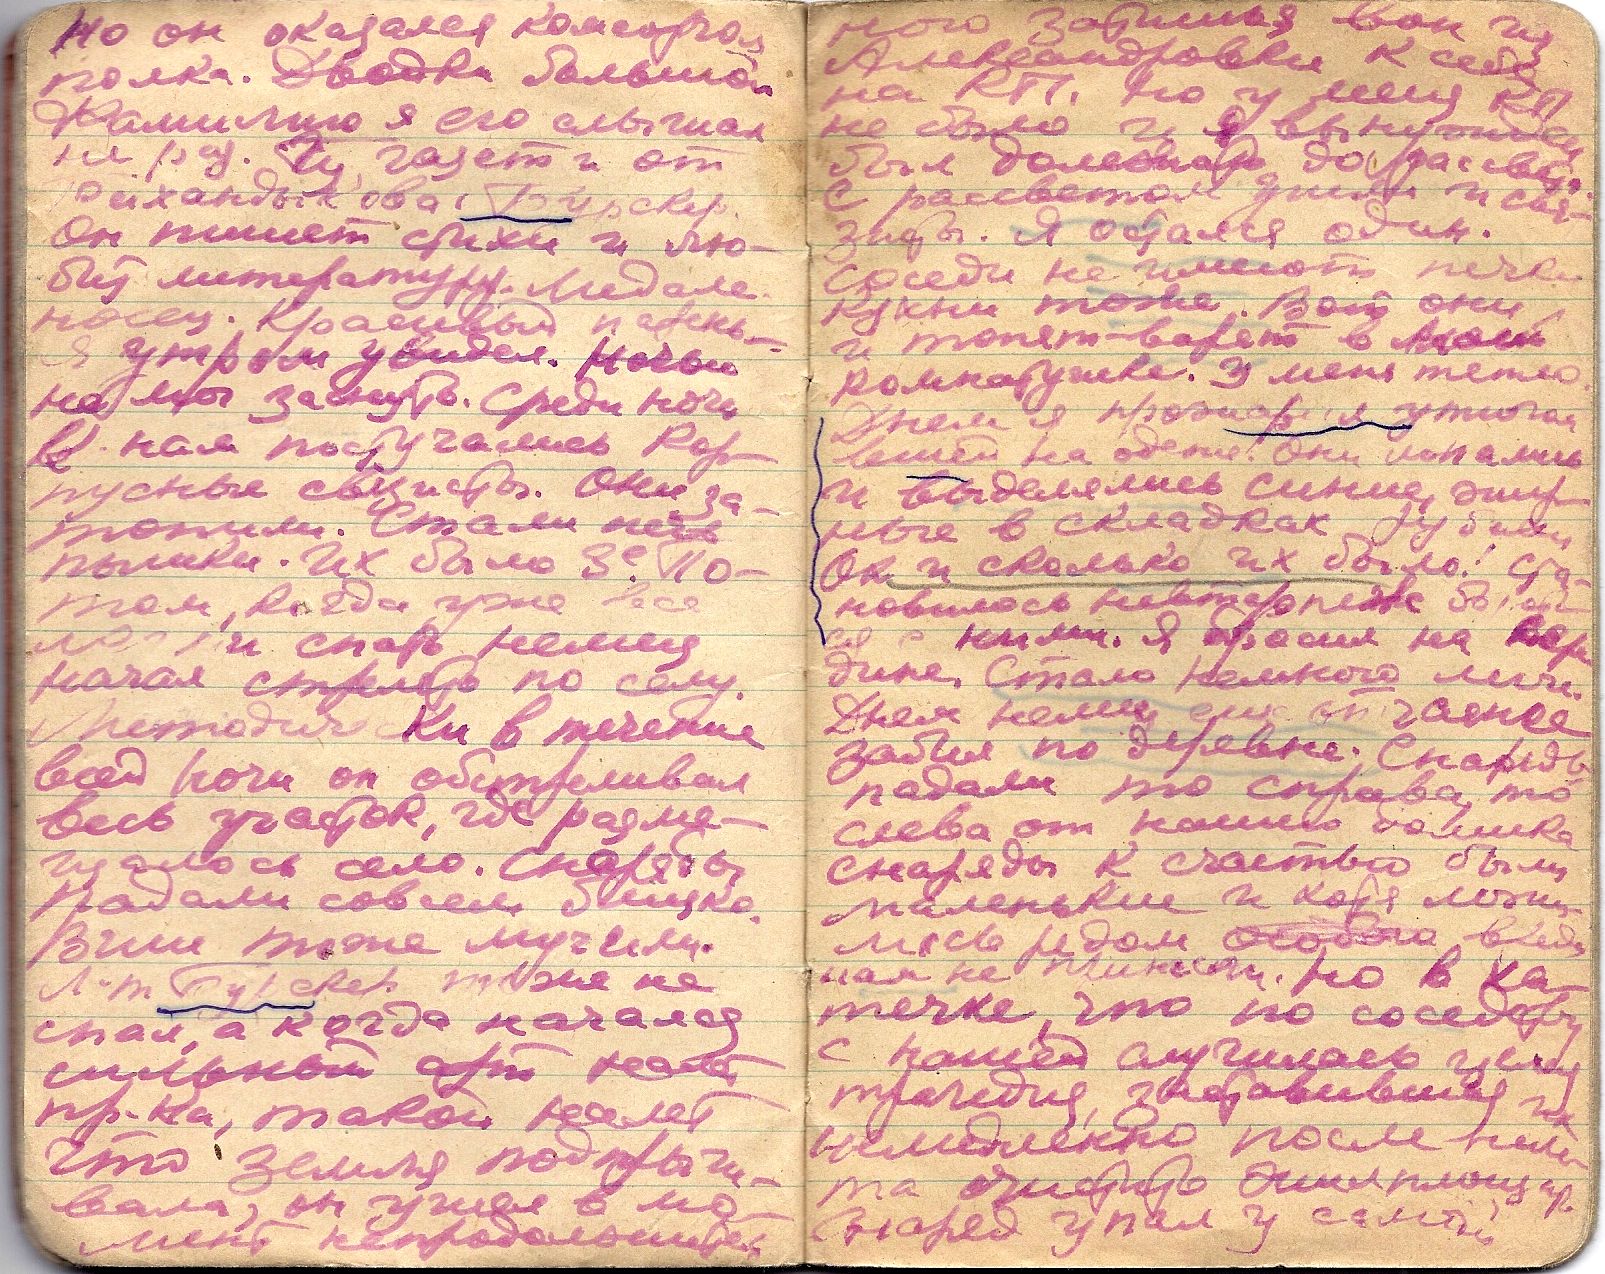 Но он оказался комсоргом
полка. Дводки большой
Фамилию я его слышал
не раз. Из газет и от
Бурскер.
Он пишет стихи и лю-
бит литературу. Медале-
носец. Красивый парень-
я утром увидел. Ночью
на мог заснуть. Среди ночи
к нам постучались Кор-
пусные связисты. Они за-
топили. Стали печь
пышки. Их было 3е По-
том, когда уже все
легли спать немец
начал стрелять по селу.
Методически в течение
всей ночи он обстреливал
весь участок, где разме-
щалось село. Снаряды
падали совсем близко.
Вши тоже мучили.
Л-т Бурскер тоже не
спал, а когда начался
сильный арт налет
пр-ка, такой налет
что земля подпрыги-
вала, он ушел в мо-
мент непродолжитель
ного затишья вон из
Александровки к себе
на КП. Но у меня КП
не было и я вынужден
был до рассвета.
С рассветом ушли и свя-
зисты. Я остался один.
Соседи не имеют печки
кухни тоже. Вот они
и топят-варят в моей
комнатушке. У меня тепло.
Днем я прожарил утюгом
вшей на одежде. Они лопались
и выделялись синие, жир-
ные в складках рубахи
Ок и сколько их было! Ста-
новилось невтерпеж бороть-
ся с ними. Я бросил на сере
дине. Стало немного легче.
Днем немец опять
забил по деревне. Снаряды
падали то справа, то
слева от нашего домика
снаряды к счастью были
маленькие и хотя ложи-
лись рядом особого вреда
нам не причиняли. Но в ха-
течке, что по соседству
с нашей случилась целая
трагедия, заставившая их
немедленно после нале-
та очистить жилплощадь.
Снаряд упал у самой